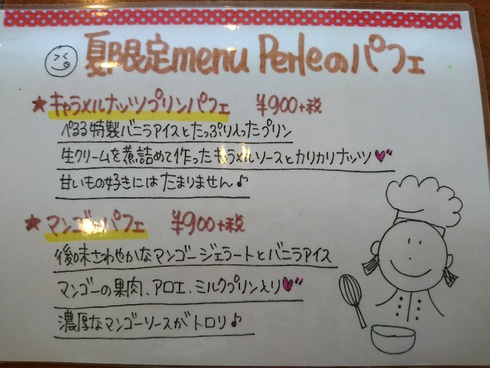 夏限定menu Perleのパフェ
★キャラメルナッツプリンパフェ ¥900+税
ぺるる特製バニラアイスとたっぷり入ったプリン
生クリームを煮詰めて作ったキャラメルソースとカリカリナッツ
甘いもの好きにはたまりません♪
★マンゴーパフェ ¥900+税
後味さわやかなマンゴージェラートとバニラアイス
マンゴーの果肉、アロエ、ミルクプリン入り
濃厚なマンゴーソースがトロリ♪